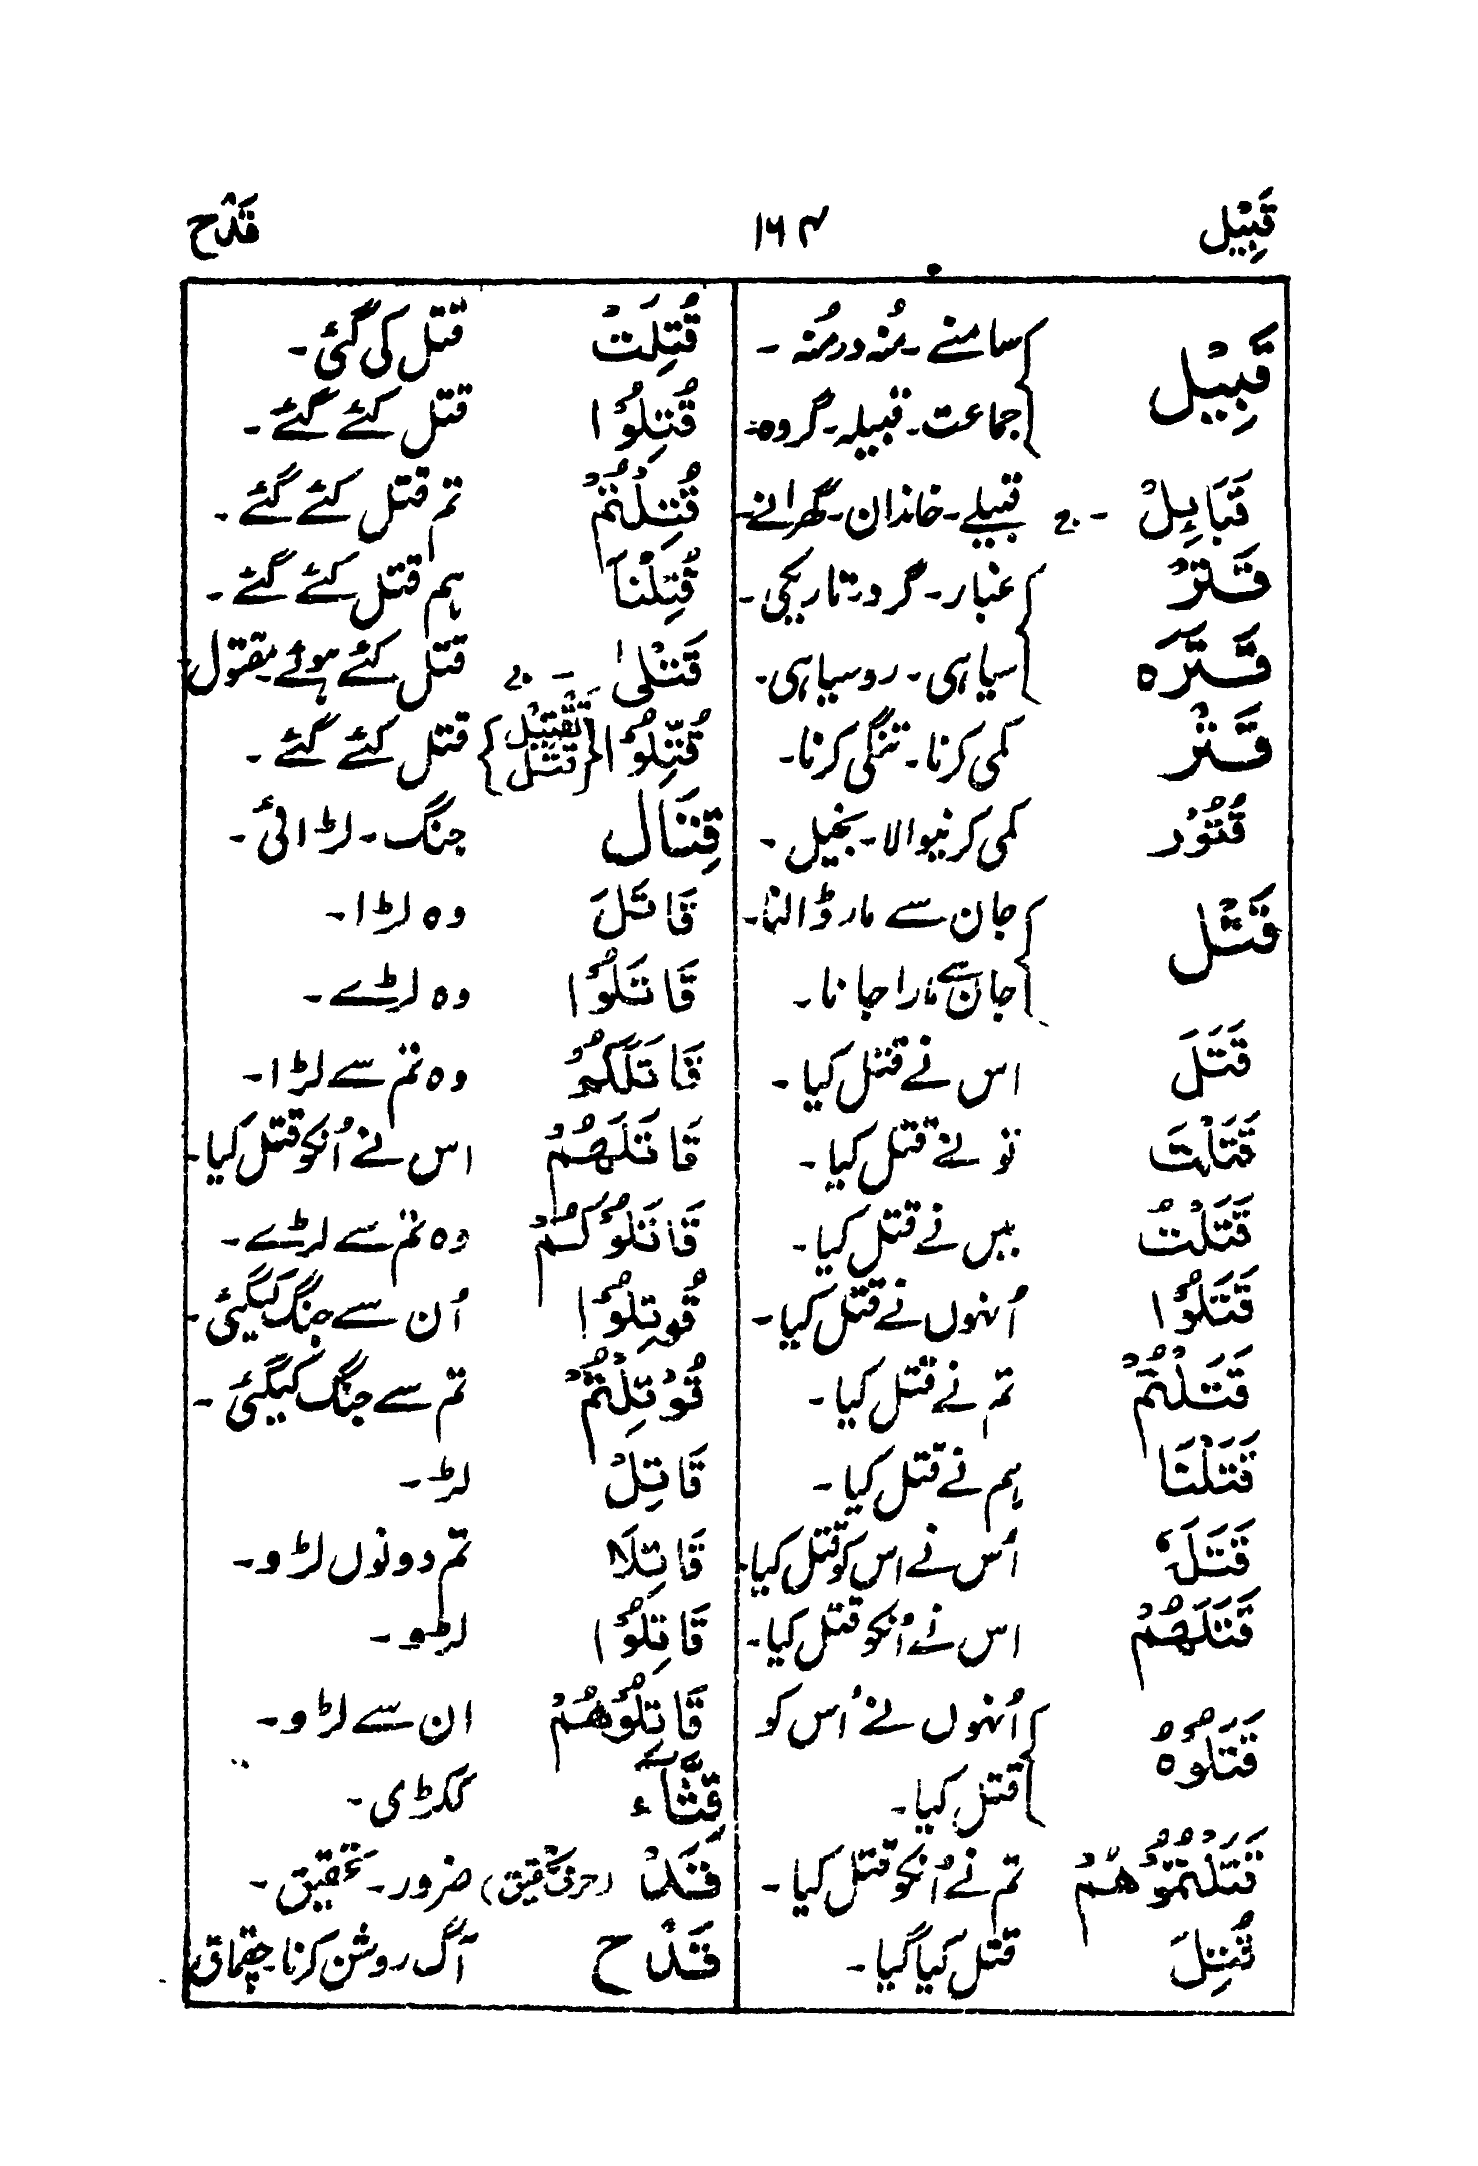 قَبِيْل ۱۶۴ قَدْح
قَبِيْل سامنے۔ مُنہ در مُنہ۔
جماعت۔ قبیلہ۔ گروہ۔
قَبَائِلْ ۔ ج قبیلے۔ خاندان۔ گھرانے۔
قَتَرْ غبار۔ گرد۔ تاریکی۔
قَتَرَه سیاہی۔ روسیاہی۔
قَتْر کمی کرنا۔ تنگی کرنا۔
قُتُوْر کمی کرنیوالا۔ بخیل۔
قَتْل جان سے مار ڈالنا۔
جان سے مارا جانا۔
قَتَلَ اس نے قتل کیا۔
قَتَلْتَ تو نے قتل کیا۔
قَتَلْتُ میں نے قتل کیا۔
قَتَلُوْا اُنہوں نے قتل کیا۔
قَتَلْتُمْ تم نے قتل کیا۔
قَتَلْنَا ہم نے قتل کیا۔
قَتَلَهٗ اُس نے اس کو قتل کیا۔
قَتَلَهُمْ اس نے اُنکو قتل کیا۔
قَتَلُوْهُ اُنہوں نے اُس کو
قتل کیا۔
قَتَلْتُمُوْهُمْ تم نے اُنکو قتل کیا۔
قُتِلَ قتل کیا گیا۔
قُتِلَتْ قتل کی گئی۔
قُتِلُوْا قتل کئے گئے۔
قُتِلْتُمْ تم قتل کئے گئے۔
قُتِلْنَا ہم قتل کئے گئے۔
قَتْلٰى ۔ ج قتل کئے ہوئے۔ مقتول۔
قُتِّلُوْا {تَقْتِيْل قَتَّلَ} قتل کئے گئے۔
قِتَال جنگ۔ لڑائی۔
قَاتَلَ وہ لڑا۔
قَاتَلُوْا وہ لڑے۔
قَاتَلَكُمْ وہ تم سے لڑا۔
قَاتَلَهُمْ اس نے اُنکو قتل کیا۔
قَاتَلُوْكُمْ وہ تم سے لڑے۔
قُوْتِلُوْا اُن سے جنگ کیگئی۔
قُوْتِلْتُمْ تم سے جنگ کیگئی۔
قَاتِلْ لڑ۔
قَاتِلَا تم دونوں لڑو۔
قَاتِلُوْا لڑو۔
قَاتِلُوْهُمْ ان سے لڑو۔
قِثَّاء ککڑی۔
قَدْ (حرف تحقیق) ضرور۔ تحقیق۔
قَدْح آگ روشن کرنا۔ چقماق